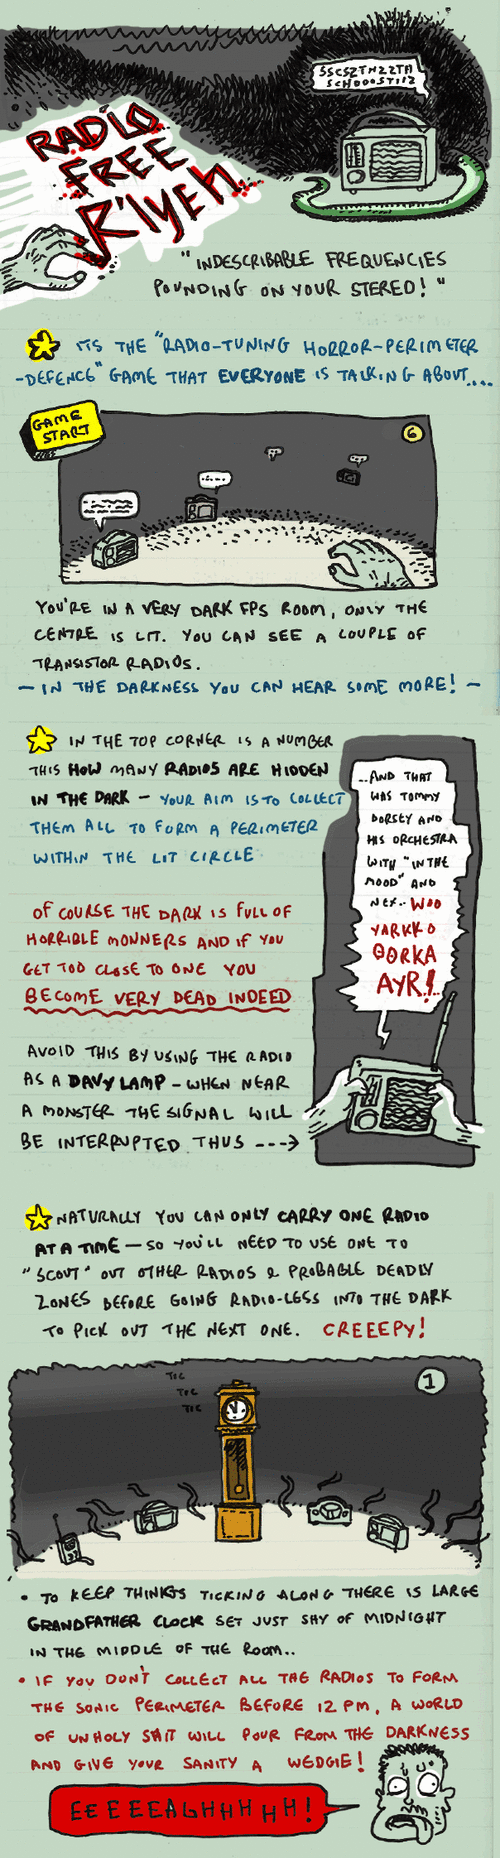 SSCSZTHZZTH
SCHOOOSTIIZ
RADIO
FREE
R'lyeh
"INDESCRIBABLE FREQUENCIES
POUNDING ON YOUR STEREO!"
ITS THE "RADIO-TUNING HORROR-PERIMETER
-DEFENCE" GAME THAT EVERYONE IS TALKING ABOUT....
GAME
START
6
YOU'RE IN A VERY DARK FPS ROOM, ONLY THE
CENTRE IS LIT. YOU CAN SEE A COUPLE OF
TRANSISTOR RADIOS.
- IN THE DARKNESS YOU CAN HEAR SOME MORE! -
IN THE TOP CORNER IS A NUMBER
THIS HOW MANY RADIOS ARE HIDDEN
IN THE DARK - YOUR AIM IS TO COLLECT
THEM ALL TO FORM A PERIMETER
WITHIN THE LIT CIRCLE
OF COURSE THE DARK IS FULL OF
HORRIBLE MONNERS AND IF YOU
GET TOO CLOSE TO ONE YOU
BECOME VERY DEAD INDEED
AVOID THIS BY USING THE RADIO
AS A DAVY LAMP - WHEN NEAR
A MONSTER THE SIGNAL WILL
BE INTERRUPTED THUS --->
...AND THAT
WAS TOMMY
DORSEY AND
HIS ORCHESTRA
WITH "IN THE
MOOD" AND
NEX.. WOO
YARKKO
GORKA
AYR!
NATURALLY YOU CAN ONLY CARRY ONE RADIO
AT A TIME - SO YOU'LL NEED TO USE ONE TO
"SCOUT" OUT OTHER RADIOS & PROBABLE DEADLY
ZONES BEFORE GOING RADIO-LESS INTO THE DARK
TO PICK OUT THE NEXT ONE. CREEEPY!
TIC
TIC
TIC
1
• TO KEEP THINKGS TICKING ALONG THERE IS LARGE
GRANDFATHER CLOCK SET JUST SHY OF MIDNIGHT
IN THE MIDDLE OF THE ROOM..
• IF YOU DON'T COLLECT ALL THE RADIOS TO FORM
THE SONIC PERIMETER BEFORE 12 PM, A WORLD
OF UNHOLY SHIT WILL POUR FROM THE DARKNESS
AND GIVE YOUR SANITY A WEDGIE!
EEEEEEALGHHHHH!